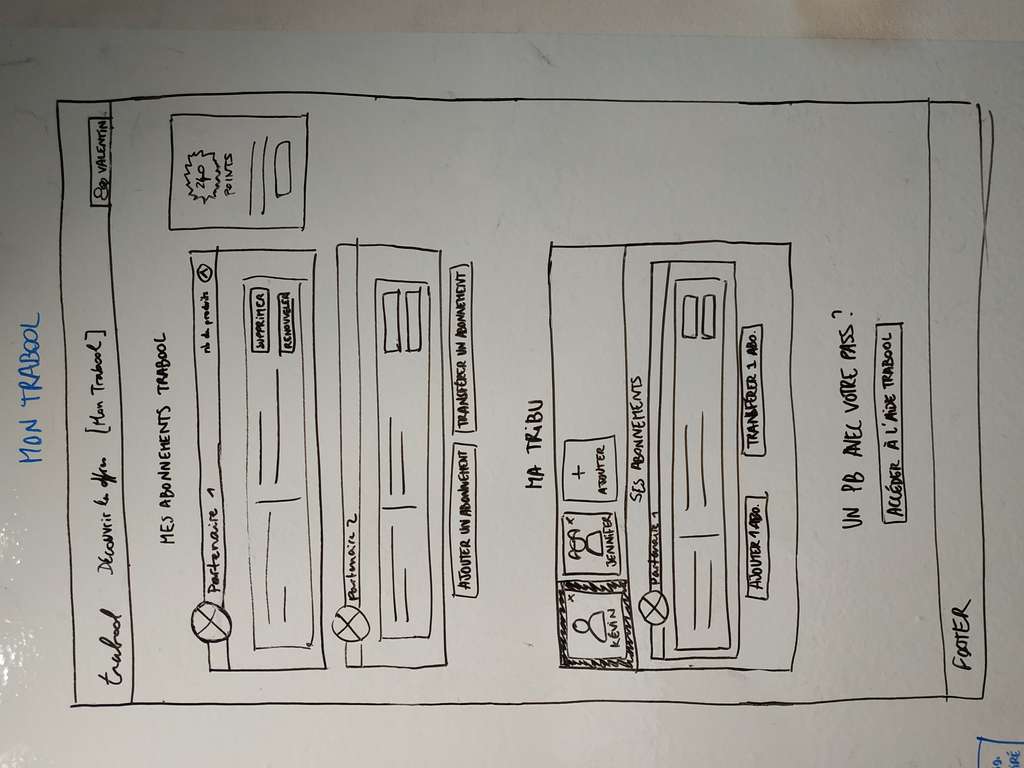 MON TRABOOL
trabool Découvrir les offres [Mon Trabool] VALENTIN
MES ABONNEMENTS TRABOOL
240
POINTS
Partenaire 1 nb de produits
SUPPRIMER
RENOUVELER
Partenaire 2
AJOUTER UN ABONNEMENT TRANSFÉRER UN ABONNEMENT
MA TRIBU
x KÉVIN
x JENNIFER
+ AJOUTER
SES ABONNEMENTS
Partenaire 1
AJOUTER 1 ABO. TRANSFÉRER 1 ABO.
UN PB AVEC VOTRE PASS ?
ACCÉDER À L'AIDE TRABOOL
FOOTER